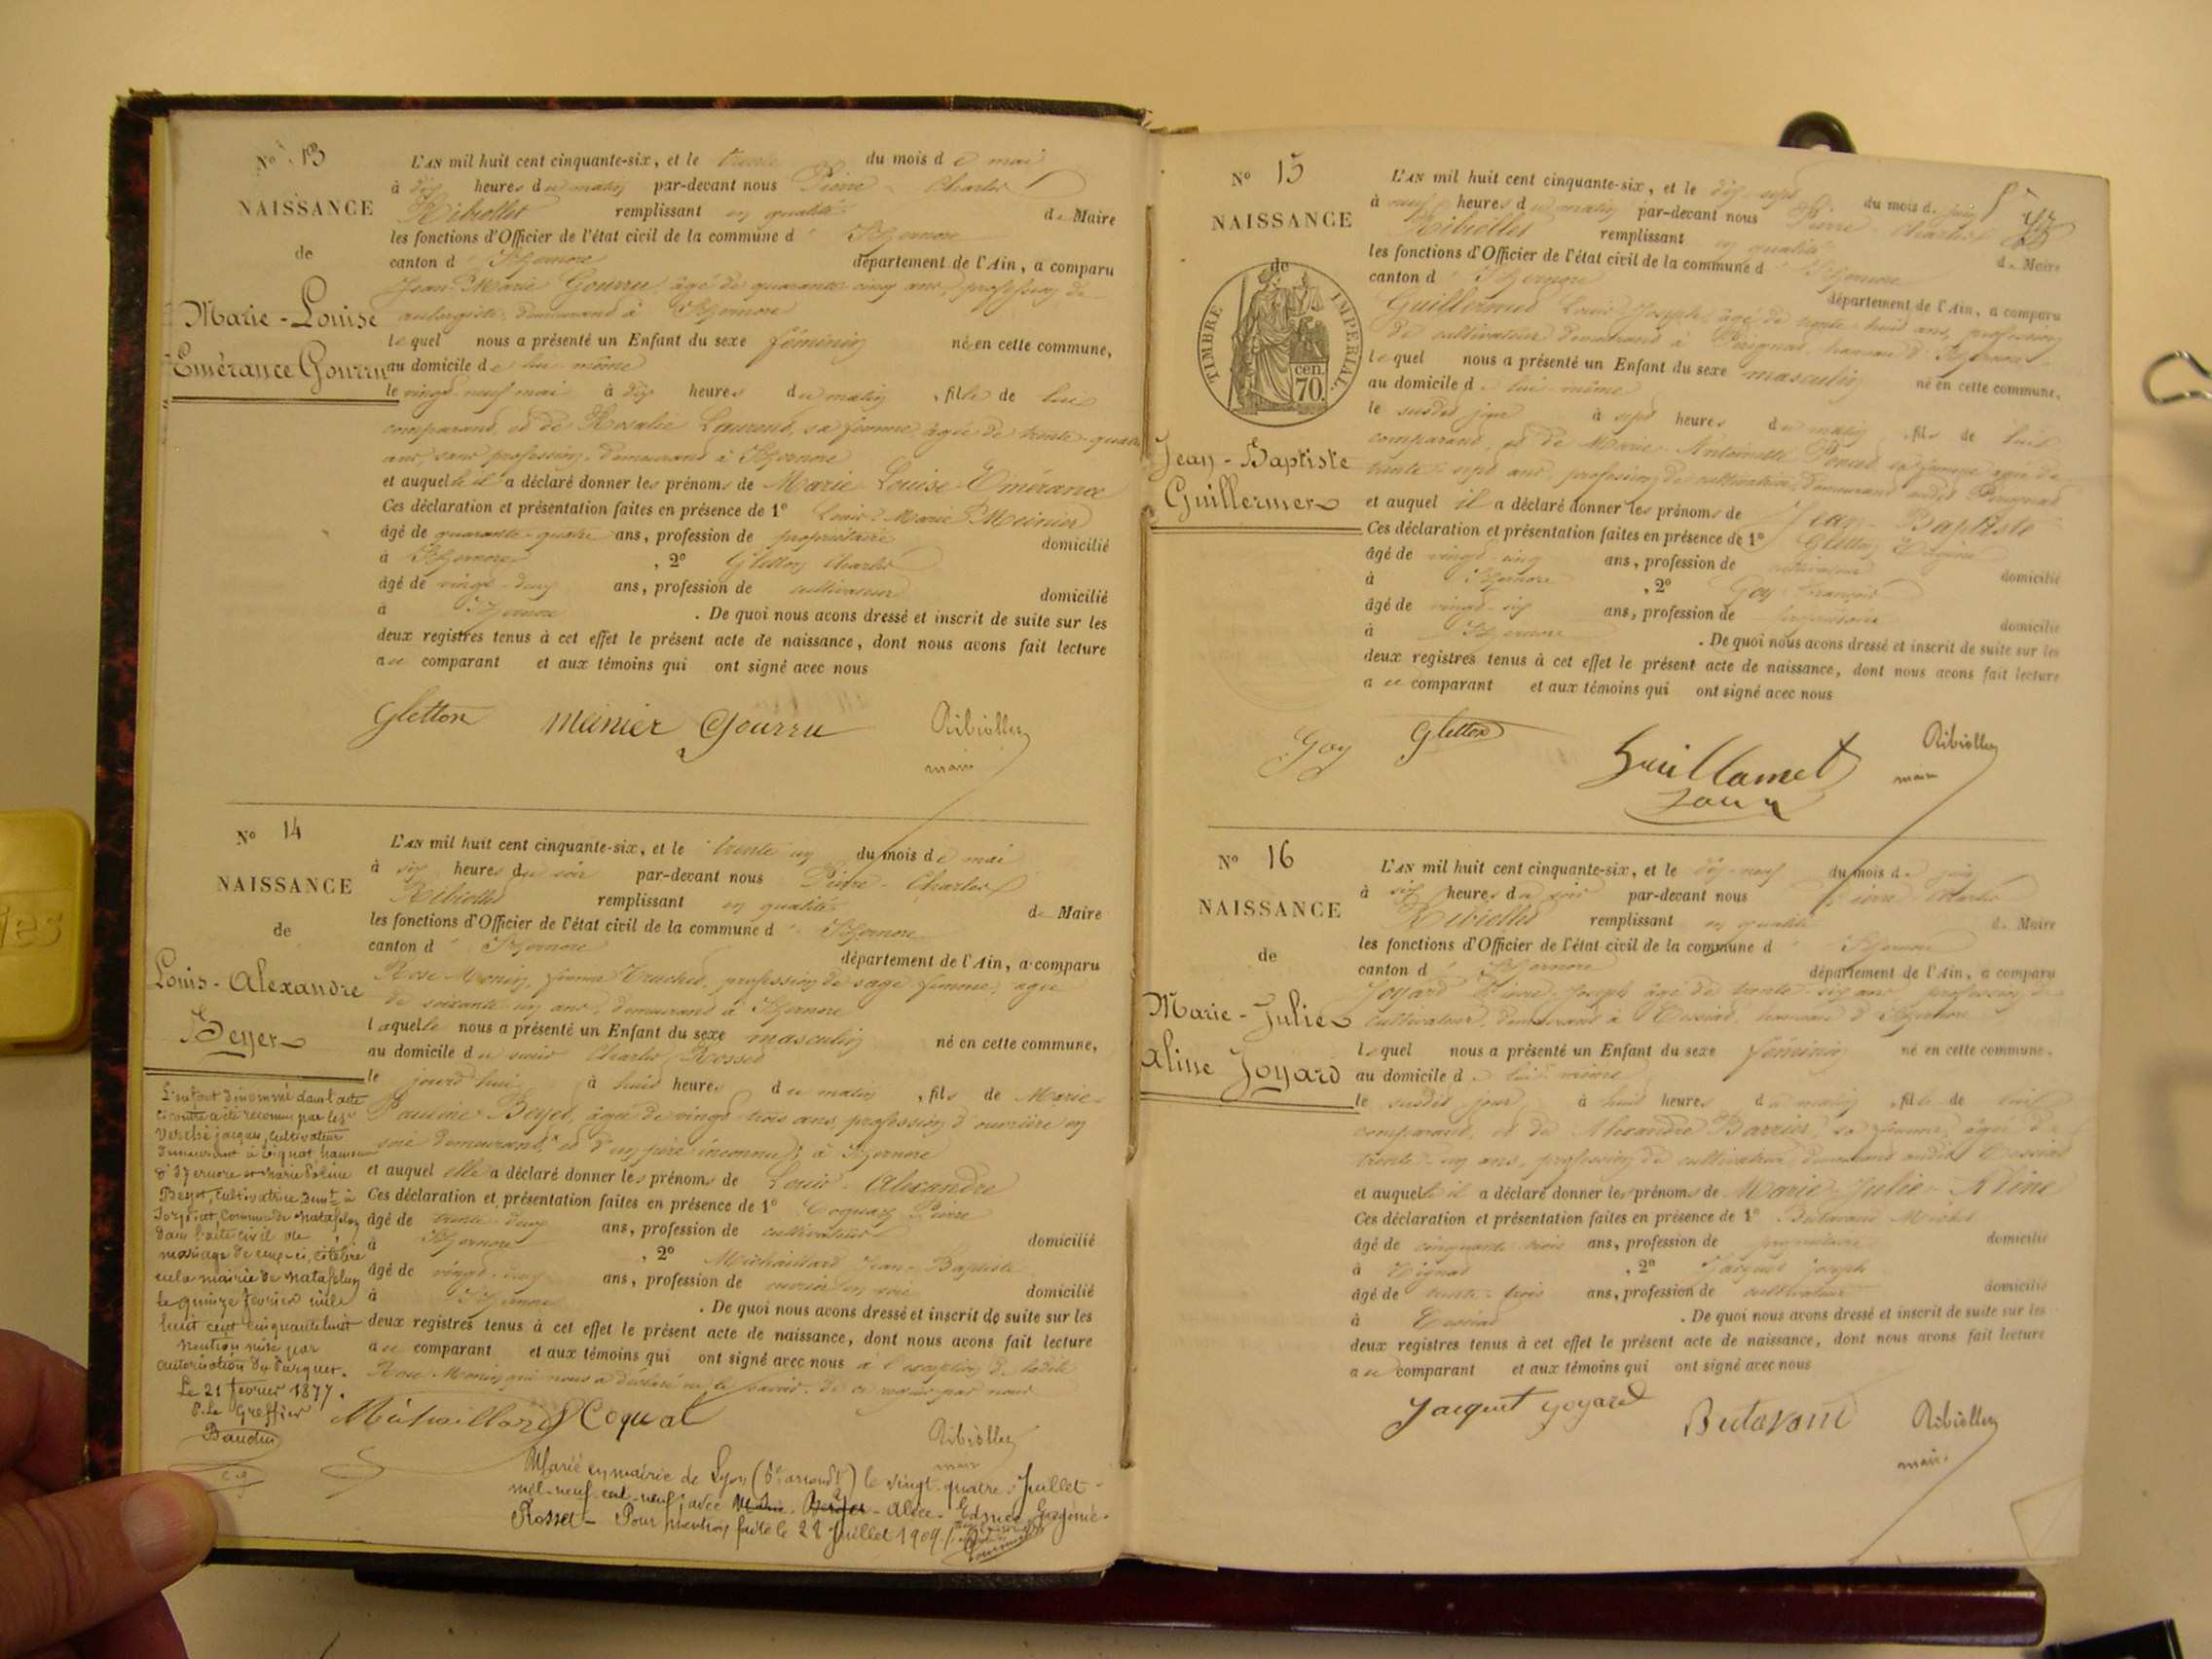 No 13
NAISSANCE
de
Marie-Louise
Emérance Gourru
L'AN mil huit cent cinquante-six, et le trente du mois de mai
à dix heures du matin par-devant nous Pierre-Charles
Ribiollet remplissant en qualité de Maire
les fonctions d'Officier de l'état civil de la commune d'Izernore
canton d'Izernore département de l'Ain, a comparu
Jean-Marie Gourru, âgé de quarante cinq ans, profession de
aubergiste, demeurant à Izernore
lequel nous a présenté un Enfant du sexe féminin né en cette commune,
au domicile de lui même
le vingt-neuf mai à dix heures du matin, fille de lui
comparant, et de Rosalie Laurent, sa femme, âgée de trente-quatre
ans, sans profession, demeurant à Izernore
et auquel il a déclaré donner les prénoms de Marie Louise Emérance
Ces déclaration et présentation faites en présence de 1° Louis-Marie Meinier
âgé de quarante-quatre ans, profession de propriétaire domicilié
à Izernore, 2° Gletton Charles
âgé de vingt-deux ans, profession de cultivateur domicilié
à Izernore. De quoi nous avons dressé et inscrit de suite sur les
deux registres tenus à cet effet le présent acte de naissance, dont nous avons fait lecture
au comparant et aux témoins qui ont signé avec nous
Gletton Meinier Gourru Ribiollet
maire
No 14
NAISSANCE
de
Louis-Alexandre
Beyer
L'AN mil huit cent cinquante-six, et le trente un du mois de mai
à six heures du soir par-devant nous Pierre-Charles
Ribiollet remplissant en qualité de Maire
les fonctions d'Officier de l'état civil de la commune d'Izernore
canton d'Izernore département de l'Ain, a comparu
Rose Monin, femme Truchet, profession de sage femme, âgée
de soixante un ans, demeurant à Izernore
laquelle nous a présenté un Enfant du sexe masculin né en cette commune,
au domicile du sieur Charles Rosset
le jourd'hui à huit heures du matin, fils de Marie
Pauline Beyet, âgée de vingt trois ans, profession d'ouvrière en
soie demeurant, et d'un père inconnu, à Izernore
et auquel elle a déclaré donner les prénoms de Louis-Alexandre
Ces déclaration et présentation faites en présence de 1° Coquard Pierre
âgé de trente-deux ans, profession de cultivateur domicilié
à Izernore, 2° Michaillard Jean-Baptiste
âgé de vingt ans, profession de ouvrier en soie domicilié
à Izernore. De quoi nous avons dressé et inscrit de suite sur les
deux registres tenus à cet effet le présent acte de naissance, dont nous avons fait lecture
au comparant et aux témoins qui ont signé avec nous à l'exception de ladite
Rose Monin qui nous a déclaré ne le savoir, de ce requis par nous
Michaillard Coquat Ribiollet
maire
L'enfant dénommé dans l'acte
ci contre a été reconnu par les
Verchè jacques, cultivateur
demeurant à tignat hameau
d'Izernore et Marie Poline
Beyet, cultivatrice demt à
Commune de Matafelon
dans l'acte civil de
mariage de ceux-ci, célébré
en la mairie de Matafelon
le quinze février mile
huit cent cinquante huit
Mention mise par
autorisation du Parquet.
Le 21 février 1877.
P. Le Greffier
Baudin
Marié en mairie de Lyon (6e arrondt) le vingt-quatre Juillet
mil-neuf-cent-neuf, avec Alice-Edmée-Eugénie
Rosset - Pour mention faite le 28 Juillet 1909
No 15
NAISSANCE
de
TIMBRE IMPERIAL
cen. 70.
Jean-Baptiste
Guillermet
L'AN mil huit cent cinquante-six, et le dix-sept du mois de juin
à neuf heures du matin par-devant nous Pierre-Charles
Ribiollet remplissant en qualité de Maire
les fonctions d'Officier de l'état civil de la commune d'Izernore
canton d'Izernore département de l'Ain, a comparu
Guillermet Louis-Joseph, âgé de trente-huit ans, profession
de cultivateur demeurant à Perignat, hameau d'Izernore
lequel nous a présenté un Enfant du sexe masculin né en cette commune,
au domicile de lui même
le susdit jour à sept heures du matin, fils de lui
comparant, et de Marie-Antoinette Poncet, sa femme âgée de
trente-sept ans, profession de cultivatrice, demeurant audit Perignat
et auquel il a déclaré donner les prénoms de Jean-Baptiste
Ces déclaration et présentation faites en présence de 1° Gletton
âgé de vingt-cinq ans, profession de cultivateur domicilié
à Izernore, 2° Goy François
âgé de vingt-six ans, profession de domicilié
à Izernore. De quoi nous avons dressé et inscrit de suite sur les
deux registres tenus à cet effet le présent acte de naissance, dont nous avons fait lecture
au comparant et aux témoins qui ont signé avec nous
Goy Gletton Guillamet Ribiollet
maire
No 16
NAISSANCE
de
Marie-Julie
Aline Joyard
L'AN mil huit cent cinquante-six, et le dix-neuf du mois de juin
à six heures du soir par-devant nous Pierre Charles
Ribiollet remplissant en qualité de Maire
les fonctions d'Officier de l'état civil de la commune d'Izernore
canton d'Izernore département de l'Ain, a comparu
Joyard Pierre-Joseph âgé de trente-six ans, profession de
cultivateur, demeurant à Tessiat, hameau d'Izernore
lequel nous a présenté un Enfant du sexe féminin né en cette commune,
au domicile de lui même
le susdit jour à huit heures du matin, fille de lui
comparant, et de Alexandre Barrier, sa femme, âgée de
trente-un ans, profession de cultivatrice, demeurant audit Tessiat
et auquel il a déclaré donner les prénoms de Marie-Julie-Aline
Ces déclaration et présentation faites en présence de 1° Butavand Michel
âgé de cinquante trois ans, profession de propriétaire domicilié
à Tignat, 2° Jacquet Joseph
âgé de trente-trois ans, profession de cultivateur domicilié
à Tessiat. De quoi nous avons dressé et inscrit de suite sur les
deux registres tenus à cet effet le présent acte de naissance, dont nous avons fait lecture
au comparant et aux témoins qui ont signé avec nous
Jacquet Joyard Butavand Ribiollet
maire